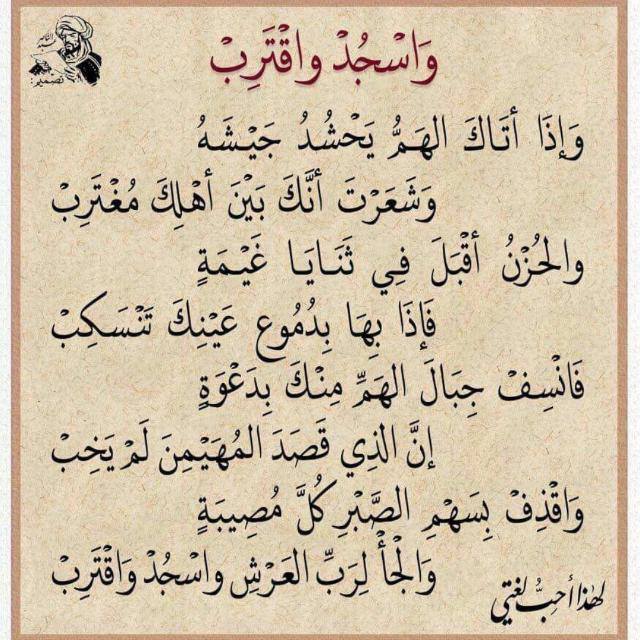 وَاسْجُدْ واقْتَرِبْ
وَإِذَا أتَاكَ الهَمُّ يَحْشُدُ جَيْشَهُ
وَشَعَرْتَ أنَّكَ بَيْنَ أهْلِكَ مُغْتَرِبْ
والحُزْنُ أقْبَلَ فِي ثَنَايَا غَيْمَةٍ
فَإذَا بِهَا بِدُمُوعِ عَيْنِكَ تَنْسَكِبْ
فَانْسِفْ جِبَالَ الهَمِّ مِنْكَ بِدَعْوَةٍ
إنَّ الذِي قَصَدَ المُهَيْمِنَ لَمْ يَخِبْ
وَاقْذِفْ بِسَهْمِ الصَّبْرِ كُلَّ مُصِيبَةٍ
وَالْجَأْ لِرَبِّ العَرْشِ واسْجُدْ وَاقْتَرِبْ
لهٰذا أحِبُّ لغتي
تصميم: